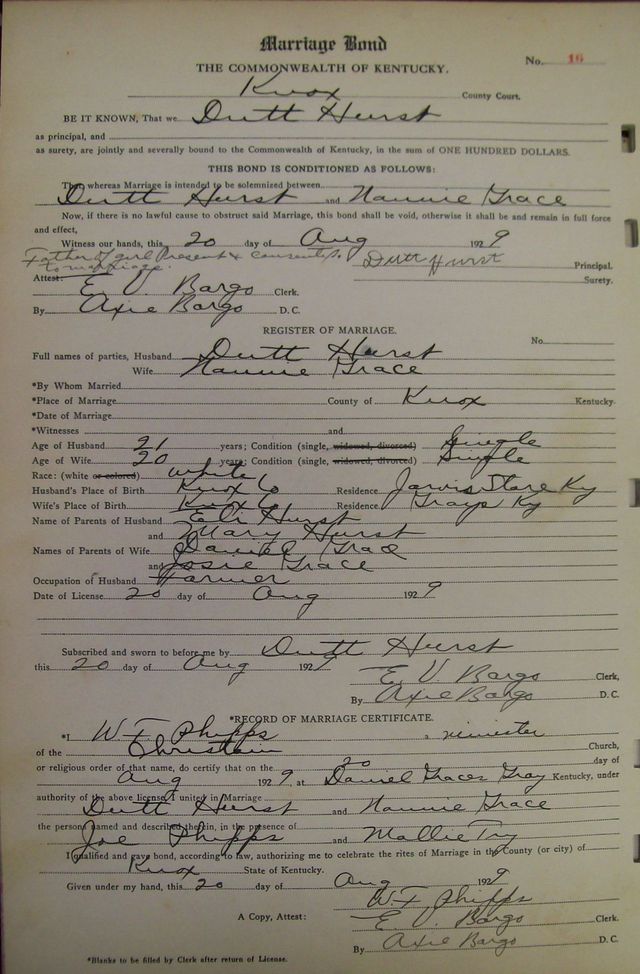 Marriage Bond
No. 16
THE COMMONWEALTH OF KENTUCKY.
Knox County Court.
BE IT KNOWN, That we Dutt Hurst
as principal, and
as surety, are jointly and severally bound to the Commonwealth of Kentucky, in the sum of ONE HUNDRED DOLLARS.
THIS BOND IS CONDITIONED AS FOLLOWS:
That whereas Marriage is intended to be solemnized between
Dutt Hurst and Nannie Grace
Now, if there is no lawful cause to obstruct said Marriage, this bond shall be void, otherwise it shall be and remain in full force
and effect,
Witness our hands, this 20 day of Aug 1929
Father of girl Present & consents
to marriage.
Dutt Hurst Principal.
Surety.
Attest: E. V. Bargo Clerk.
By Axie Bargo D. C.
REGISTER OF MARRIAGE.
No.
Full names of parties, Husband Dutt Hurst
Wife Nannie Grace
*By Whom Married
*Place of Marriage County of Knox Kentucky.
*Date of Marriage
*Witnesses and
Age of Husband 21 years; Condition (single, widowed, divorced) Single
Age of Wife 20 years; Condition (single, widowed, divorced) Single
Race: (white or colored) White
Husband's Place of Birth Knox Co Residence Jarvis Store Ky
Wife's Place of Birth Knox Co Residence Grays Ky
Name of Parents of Husband Eli Hurst
and Mary Hurst
Names of Parents of Wife Daniel Grace
and Josie Grace
Occupation of Husband Farmer
Date of License 20 day of Aug 1929
Subscribed and sworn to before me by Dutt Hurst
this 20 day of Aug 1929
E. V. Bargo Clerk,
By Axie Bargo D. C.
*RECORD OF MARRIAGE CERTIFICATE.
*I W. F. Phipps a minister
of the Christain Church,
or religious order of that name, do certify that on the 20 day of
Aug 1929, at Daniel Graces Gray Kentucky, under
authority of the above license, I united in Marriage
Dutt Hurst and Nannie Grace
the person named and described therein, in the presence of
Joe Phipps and Mallie
I qualified and gave bond, according to law, authorizing me to celebrate the rites of Marriage in the County (or city) of
Knox State of Kentucky.
Given under my hand, this 20 day of Aug 1929
W. F. Phipps
A Copy, Attest: E. V. Bargo Clerk.
By Axie Bargo D. C.
*Blanks to be filled by Clerk after return of License.